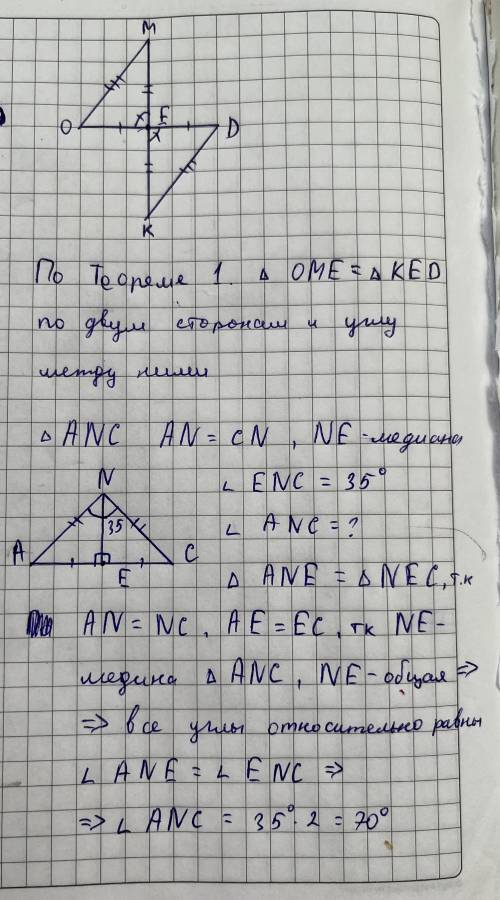 M
O x E D
x
K
По Теореме 1. △ OME = △ KED
по двум сторонам и углу
между ними
△ ANC AN = CN, NE - медиана
N
∠ ENC = 35°
35
∠ ANC = ?
A E C
△ ANE = △ NEC, т.к
AN = NC, AE = EC, тк NE-
медина △ ANC, NE - общая ⇒
⇒ все углы относительно равны
∠ ANE = ∠ ENC ⇒
⇒ ∠ ANC = 35° · 2 = 70°